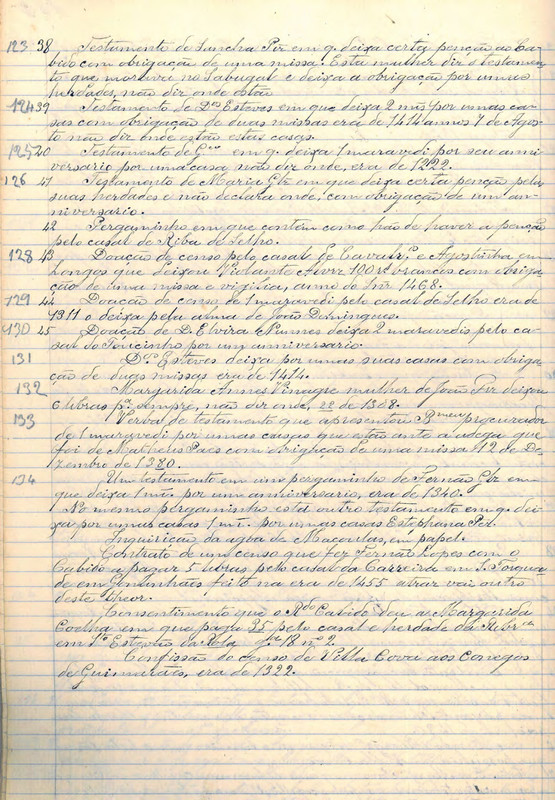 123 38 Testamento de Sancha Piz em q. deixa certa penção ao Ca-
bido com obrigação de uma missa. Esta mulher diz o testamen-
to que morreu no Sabugal e deixa a obrigação por umas
herdades, não diz onde estão.
124 39 Testamento de D.os Esteves em que deixa 2 mrs por umas ca-
sas com obrigação de duas missas era de 1414 annos 7 de Agos-
to não diz onde estão estas casas.
125 40 Testamento de G.co em q. deixa 1 maravedi por seu anni-
versario por uma casa, não diz onde, era de 1322.
126 41 Testamento de Maria Glz em que deixa certa penção pelas
suas herdades e não declara onde, com obrigação de um an-
niversario.
42 Pergaminho em que contém como hão de haver a penção
pelo casal de Riba de Selho.
128 43 Doação de censo pelo casal de e Agostinha em
Longos que deixou Violante 100 rs brancos com obriga-
ção de uma missa e vigilia, anno do Snr 1468.
129 44 Doação de censo de 1 maravedi pelo casal de Selho era de
1311 o deixa pela alma de João Domingues.
130 45 Doação de D. Elvira Nunnes deixa 2 maravedis pelo ca-
sal do Touicinho por um anniversario.
131 D.os Esteves deixa por umas suas casas com obriga-
ção de duas missas era de 1414.
132 Margarida Annes Vinagre mulher de João Piz deixou
6 libras p.a sempre, não diz onde, era de 1368.
133 Verba de testamento que apresentou B.meu procurador
de 1 maravedi por umas casas que estão ante a adega que
foi de Matheus Paes com obrigação de uma missa 12 de De-
zembro de 1380.
134 Um testamento em um pergaminho de Fernão Glz em
que deixa 1 mr. por um anniversario, era de 1340.
No mesmo pergaminho está outro testamento em q. dei-
xa por umas casas 1 mr. por umas casas Estephana Piz.
Inquirição da agua de Maçoulas, em papel.
Contrato de um censo que fez Fernão Lopes com o
Cabido a pagar 5 libras pelo casal da Carreira em S. Torqua-
de em Guimarães feito na era de 1455 atraz vai outro
deste theor.
Consentimento que o R.do Cabido deu a Margarida
Coelha em que paga 35 pelo casal e herdade da
em S.to Estevão da 18 n.o 2.
Confissão do censo de Villa Cova aos Conegos
de Guimarães, era de 1322.